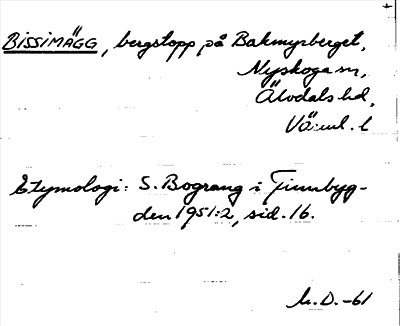 BISSIMÄGG, bergstopp på Bakmyrberget,
Nyskoga sn,
Älvdals hd,
Värml. l
Etymologi: S. Bograng i Finnbyg-
den 1951:2, sid. 16.
M. D. -61